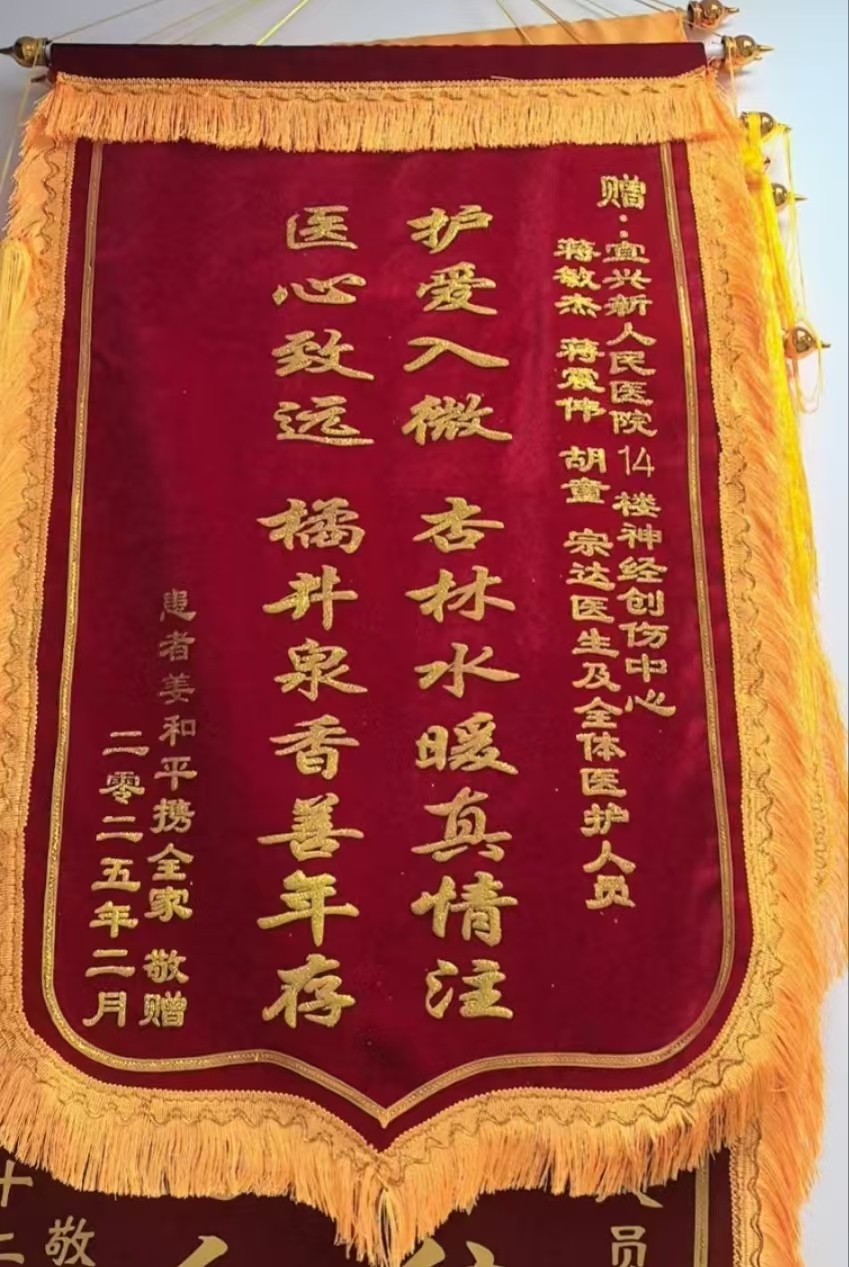 赠：宜兴新人民医院14楼神经创伤中心
蒋敏杰 蒋震伟 胡童 宗达医生及全体医护人员
护爱入微 杏林水暖真情注
医心致远 橘井泉香善年存
患者姜和平携全家 敬赠
二零二五年二月
员
敬